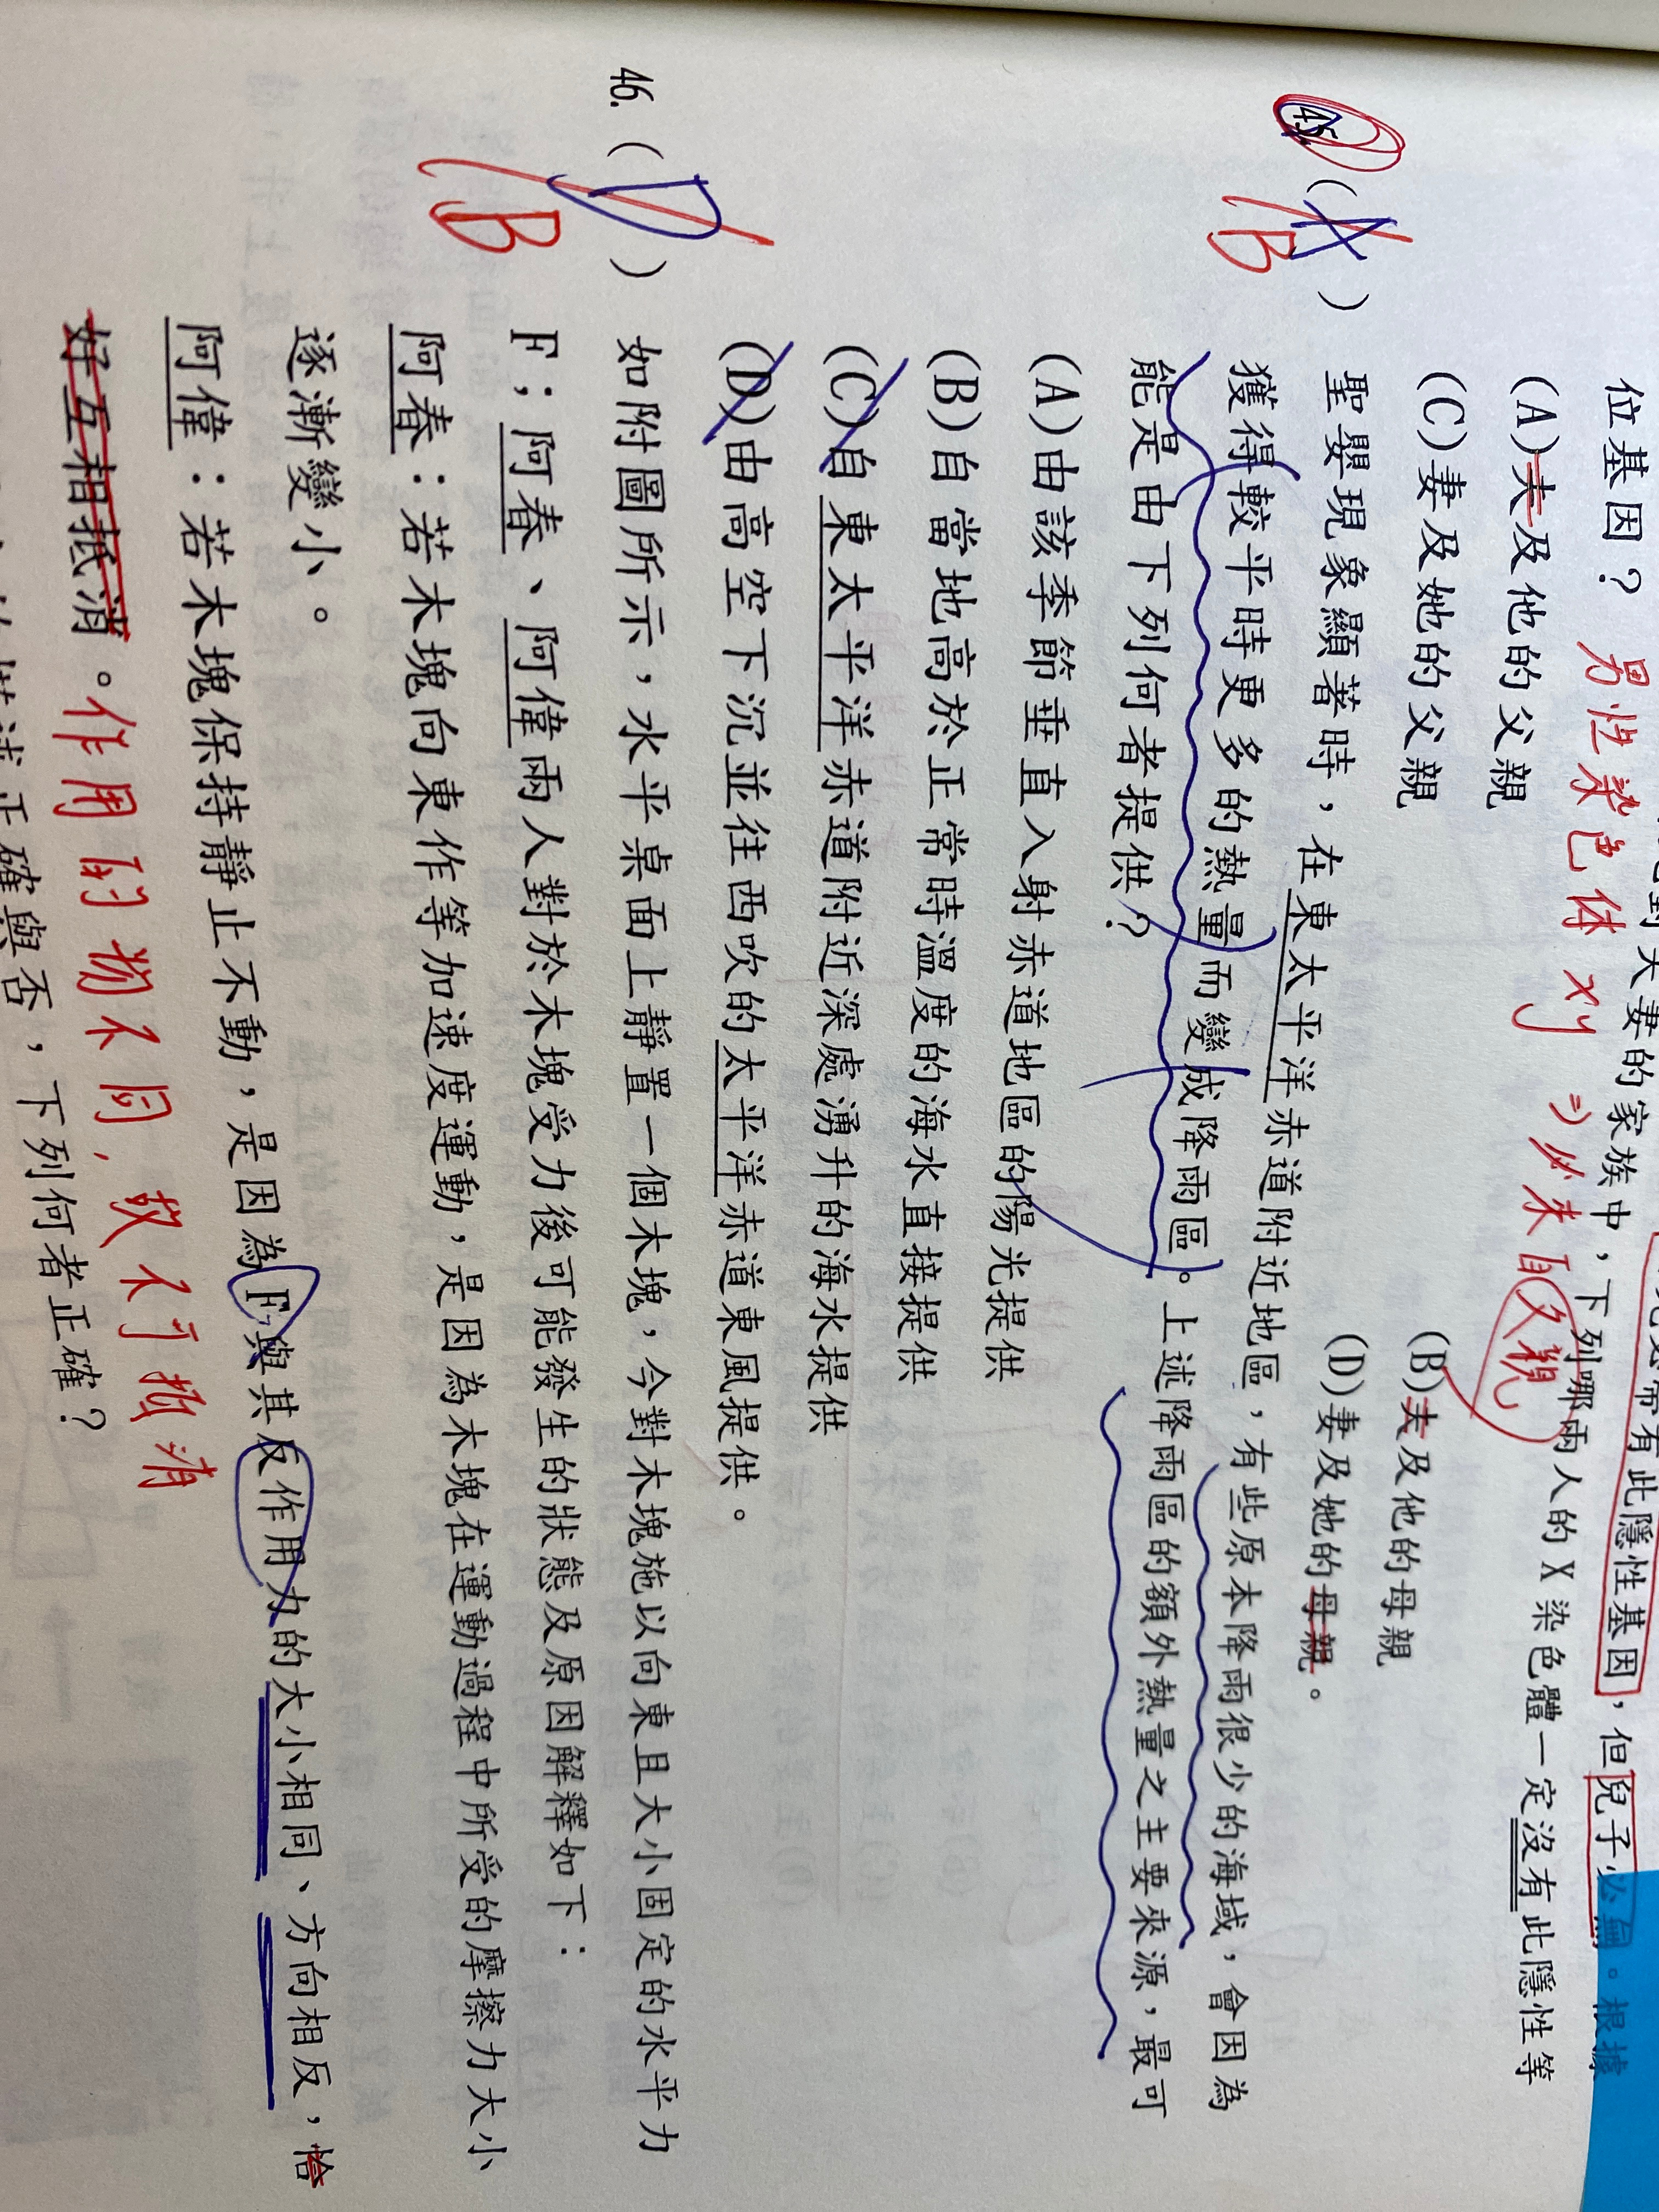 位基因？ 男性染色体 xy ⇒ 必来自父親
夫妻的家族中，下列哪兩人的 X 染色體一定沒有此隱性等
帶有此隱性基因，但兒子必 。根據
(A)夫及他的父親 (B)夫及他的母親
(C)妻及她的父親 (D)妻及她的母親。
45. ( A ) B 聖嬰現象顯著時，在東太平洋赤道附近地區，有些原本降雨很少的海域，會因為
獲得較平時更多的熱量而變成降雨區。上述降雨區的額外熱量之主要來源，最可
能是由下列何者提供？
(A)由該季節垂直入射赤道地區的陽光提供
(B)自當地高於正常時溫度的海水直接提供
(C)自東太平洋赤道附近深處湧升的海水提供
(D)由高空下沉並往西吹的太平洋赤道東風提供。
46. ( D ) B 如附圖所示，水平桌面上靜置一個木塊，今對木塊施以向東且大小固定的水平力
F；阿春、阿偉兩人對於木塊受力後可能發生的狀態及原因解釋如下：
阿春：若木塊向東作等加速度運動，是因為木塊在運動過程中所受的摩擦力大小
逐漸變小。
阿偉：若木塊保持靜止不動，是因為 F 與其反作用力的大小相同、方向相反，恰
好互相抵消。作用的物不同，故不行抵消
正確與否，下列何者正確？